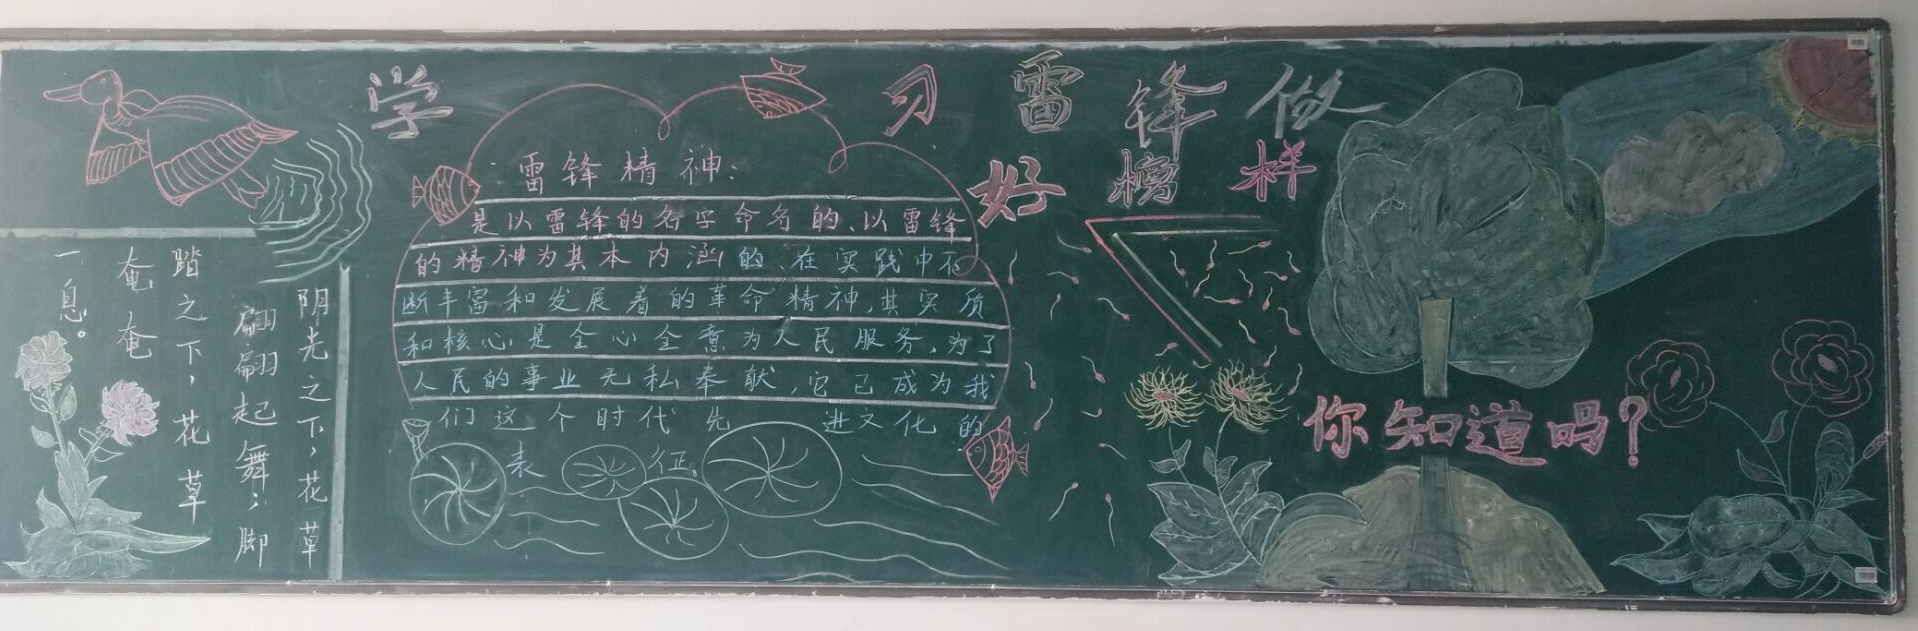 学习雷锋做
好榜样
雷锋精神:
是以雷锋的名字命名的、以雷锋
的精神为其本内涵的、在实践中不
断丰富和发展着的革命精神,其实质
和核心是全心全意为人民服务,为了
人民的事业无私奉献,它已成为我
们这个时代先进文化的
表征。
你知道吗?
阴光之下,花草
翩翩起舞;脚
踏之下,花草
奄奄
一息。